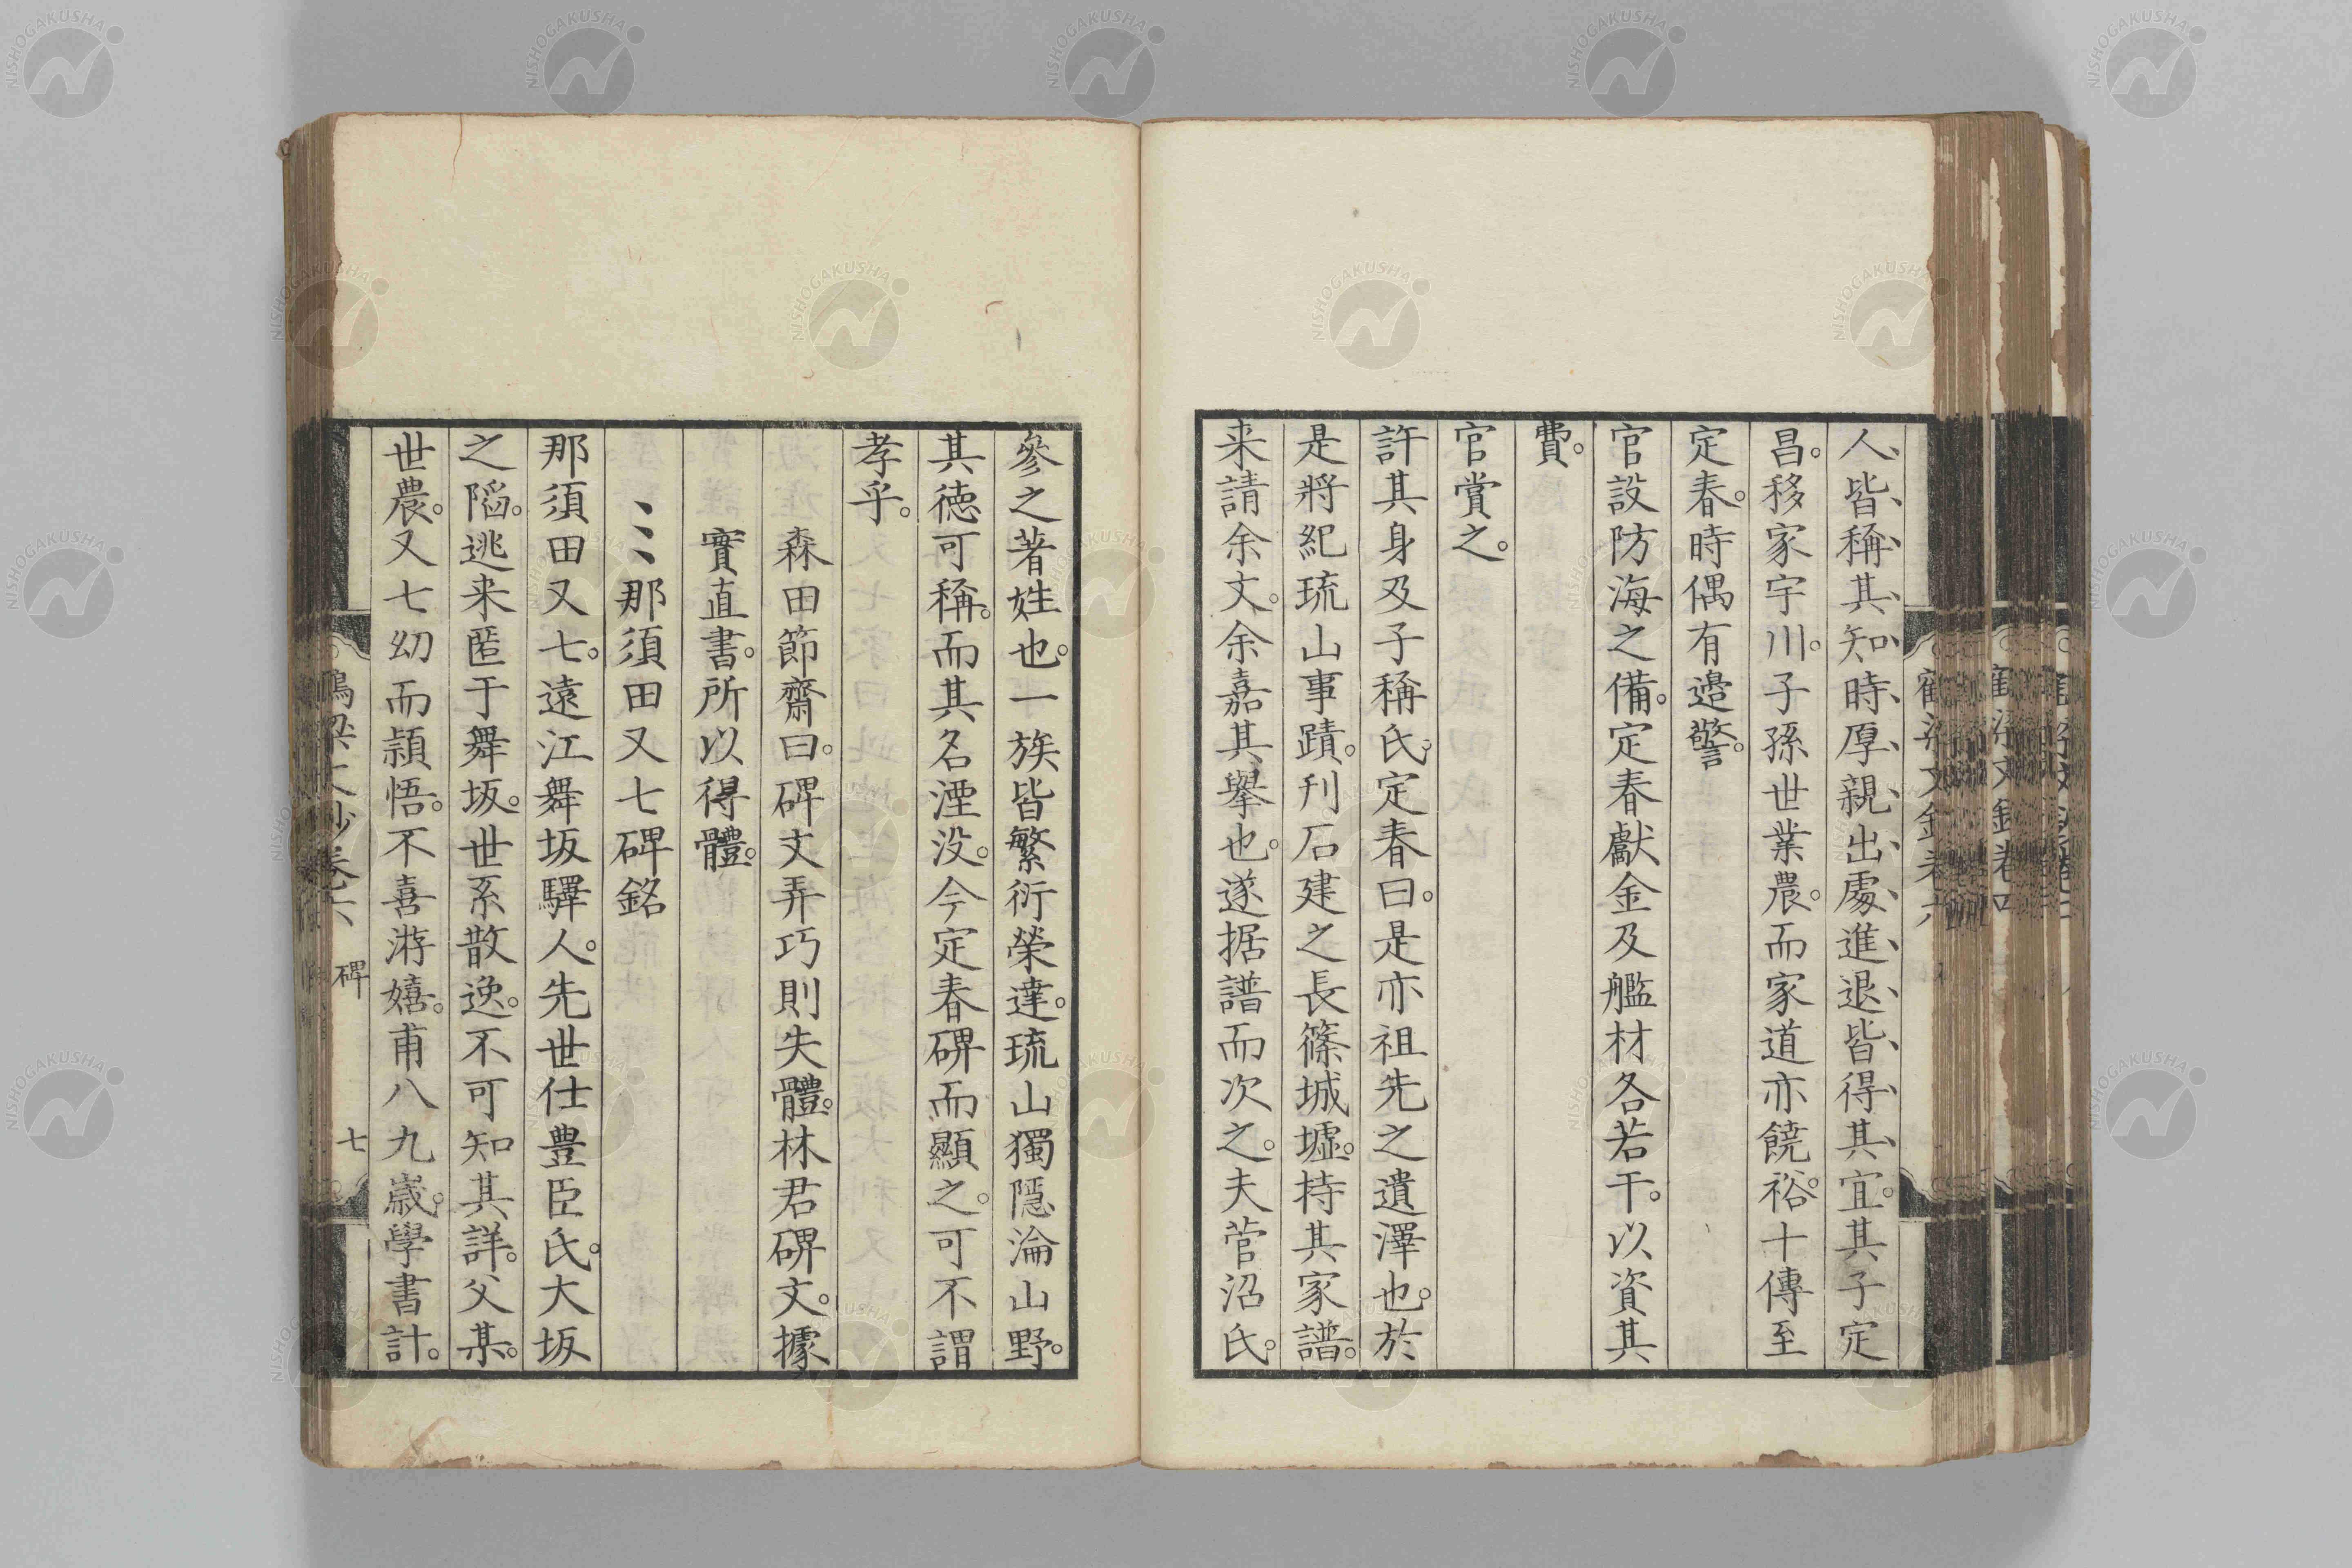 人、皆、稱、其、知、時、厚、親、出、處、進、退、皆、得、其、宜。其子定
昌。移家宇川。子孫世業農。而家道亦饒裕。十傳至
定春。時偶有邊警。
官設防海之備。定春獻金及艦材各若干。以資其
費。
官賞之。
許其身及子稱氏。定春曰。是亦祖先之遺澤也。於
是將紀琉山事蹟。刊石建之長篠城墟。持其家譜。
来請余文。余嘉其擧也。遂据譜而次之。夫菅沼氏。
參之著姓也。一族皆繁衍榮達。琉山獨隱淪山野。
其德可稱。而其名湮没。今定春碑而顯之。可不謂
孝乎。
森田節齋曰。碑文弄巧則失體。林君碑文。據
實直書。所以得體。
那須田又七碑銘
那須田又七。遠江舞坂驛人。先世仕豊臣氏。大坂
之陷。逃来匿于舞坂。世系散逸。不可知其詳。父某。
世農。又七幼而頴悟。不喜游嬉。甫八九歳。學書計。
卷六 碑 七
NISHOGAKUSHA